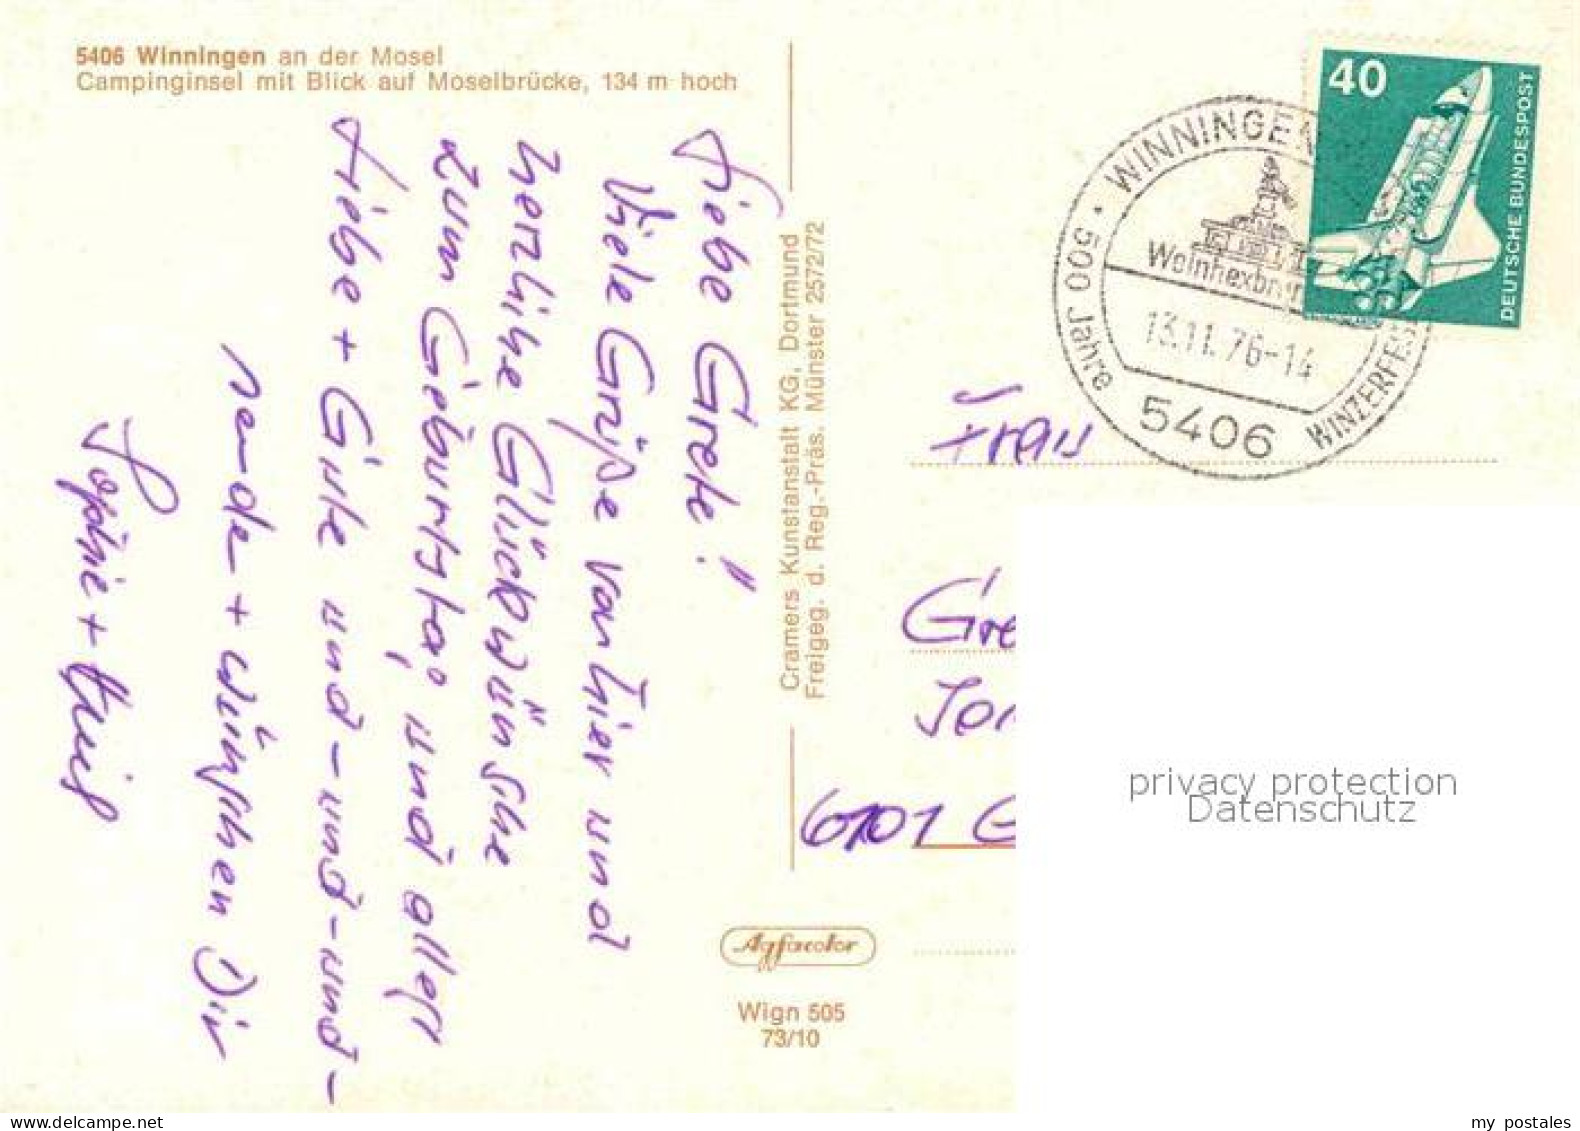 5406 Winningen an der Mosel
Campinginsel mit Blick auf Moselbrücke, 134 m hoch
Liebe Grete!
Viele Grüße von hier und
herzliche Glückwünsche
zum Geburtstag und alles
Liebe + Gute und-und-und-
wünschen Dir
Sophie +
Cramers Kunstanstalt KG, Dortmund
Freigeg. d. Reg.-Präs. Münster 2572/72
Agfacolor
Wign 505
73/10
40
DEUTSCHE BUNDESPOST
WINNINGEN
Weinhexbr
13.11.76-14
5406
500 Jahre
WINZERFES
Frau
Gre
6101 G
privacy protection
Datenschutz
www.delcampe.net
my postales